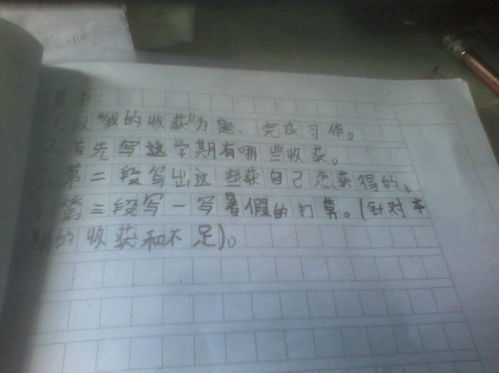 要求:
1.以"我的收获"为题,完成习作。
2.首先写这学期有哪些收获。
第二段写出这些获自己怎获得的。
第三段写一写暑假的打算。(针对本
期的收获和不足)。